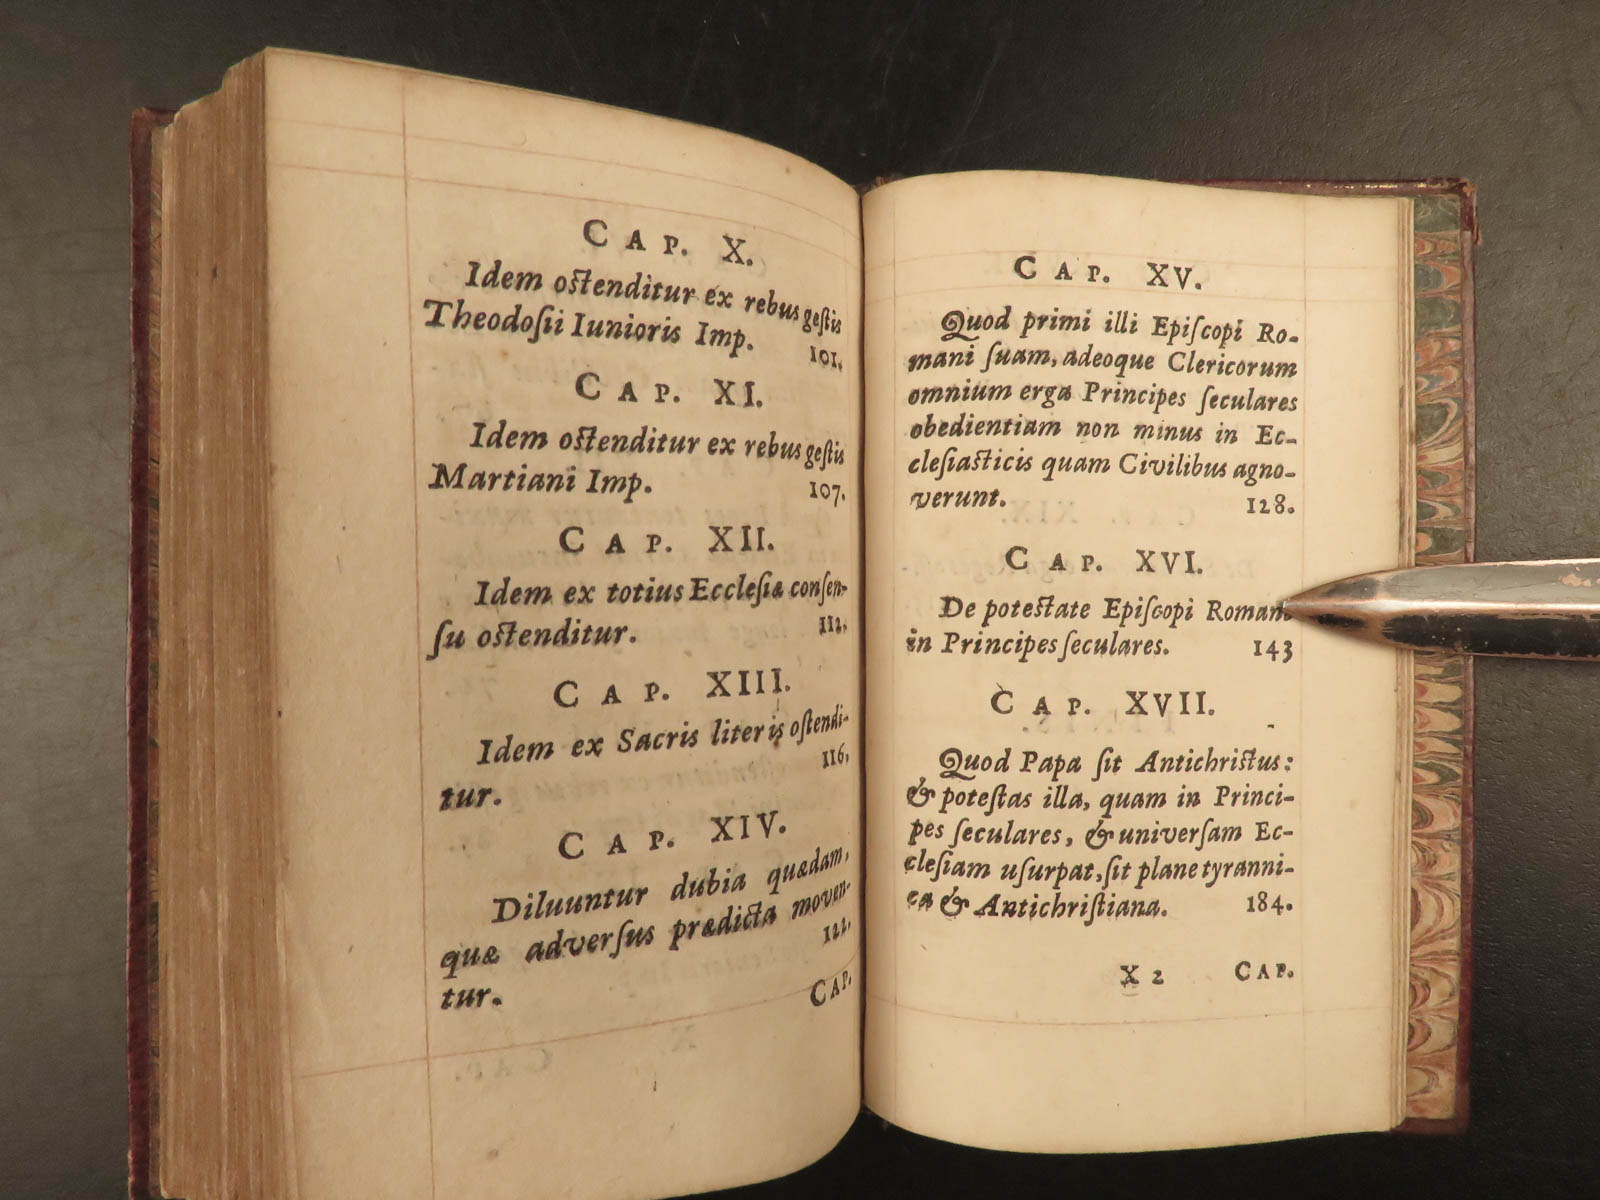 CAP. X.
Idem oſtenditur ex rebus geſtis
Theodoſii Iunioris Imp. 101.
CAP. XI.
Idem oſtenditur ex rebus geſtis
Martiani Imp. 107.
CAP. XII.
Idem ex totius Eccleſiæ conſen-
ſu oſtenditur. 112.
CAP. XIII.
Idem ex Sacris literis oſtendi-
tur. 116.
CAP. XIV.
Diluuntur dubia quædam,
quæ adverſus prædicta moven-
tur. 122.
CAP.
CAP. XV.
Quod primi illi Epiſcopi Ro-
mani ſuam, adeoque Clericorum
omnium erga Principes ſeculares
obedientiam non minus in Ec-
cleſiaſticis quam Civilibus agno-
verunt. 128.
CAP. XVI.
De poteſtate Epiſcopi Romani
in Principes ſeculares. 143
CAP. XVII.
Quod Papa ſit Antichriſtus:
& poteſtas illa, quam in Princi-
pes ſeculares, & univerſam Ec-
cleſiam uſurpat, ſit plane tyranni-
ca & Antichriſtiana. 184.
X 2 CAP.